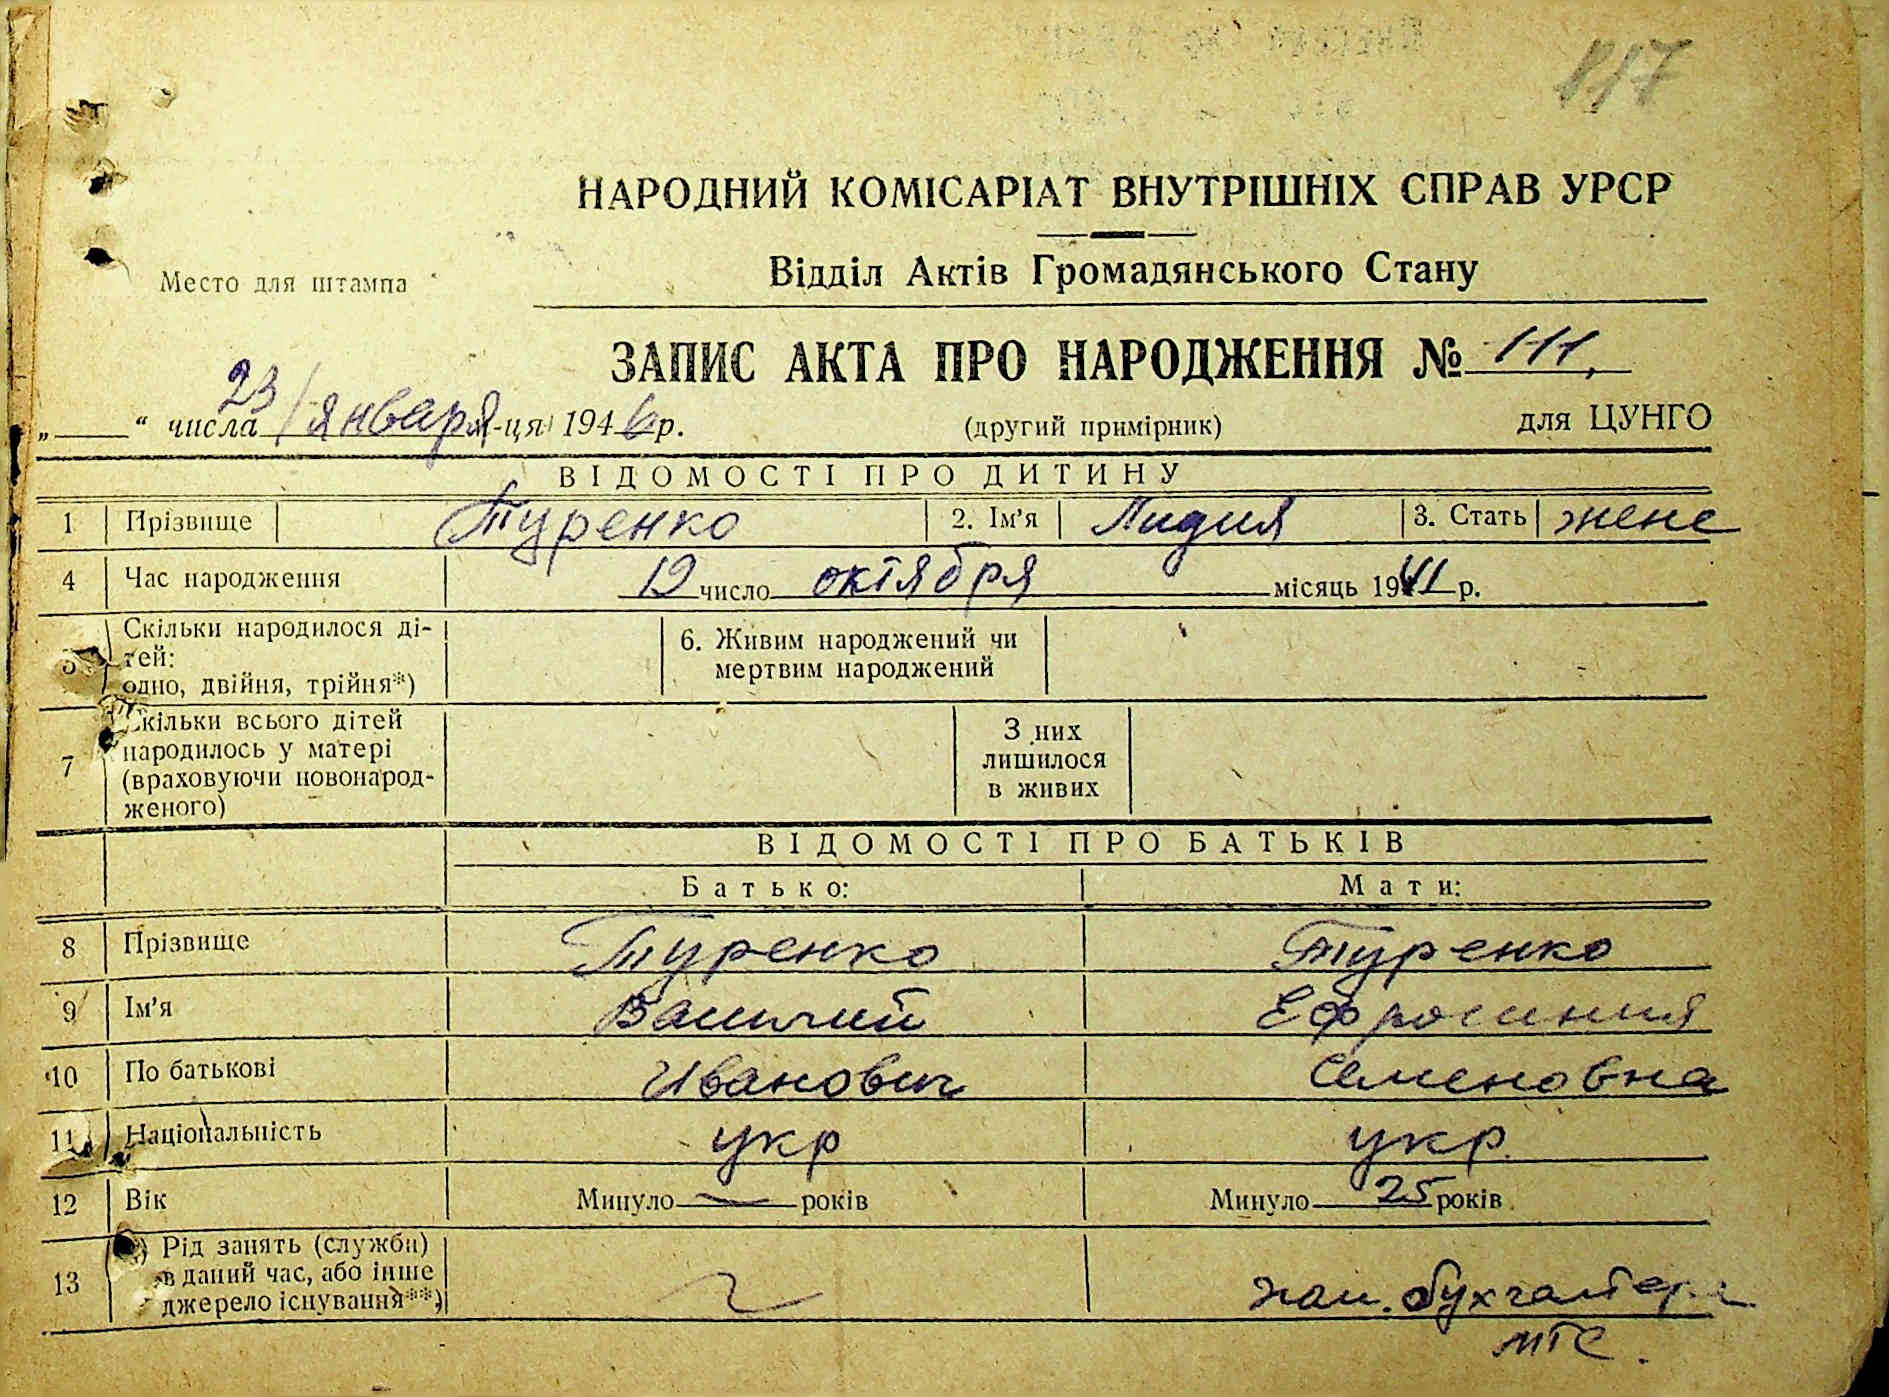 117
НАРОДНИЙ КОМІСАРІАТ ВНУТРІШНІХ СПРАВ УРСР
Место для штампа
Відділ Актів Громадянського Стану
ЗАПИС АКТА ПРО НАРОДЖЕННЯ № 111.
„ “ числа 23 января м-ця 1946 р.
(другий примірник)
для ЦУНГО
ВІДОМОСТІ ПРО ДИТИНУ
1 Прізвище Туренко 2. Ім'я Лидия 3. Стать жене
4 Час народження 12 число октября місяць 1941 р.
5 Скільки народилося ді-
тей:
одно, двійня, трійня*)
6. Живим народжений чи
мертвим народжений
7 Скільки всього дітей
народилось у матері
(враховуючи новонарод-
женого)
З них
лишилося
в живих
ВІДОМОСТІ ПРО БАТЬКІВ
Батько: Мати:
8 Прізвище Туренко Туренко
9 Ім'я Василий Ефросиния
10 По батькові Иванович Семеновна
11 Національність укр укр.
12 Вік Минуло — років Минуло 25 років
13 Рід занять (служби)
в даний час, або інше
джерело існування**)
бухгалтера
МТС.